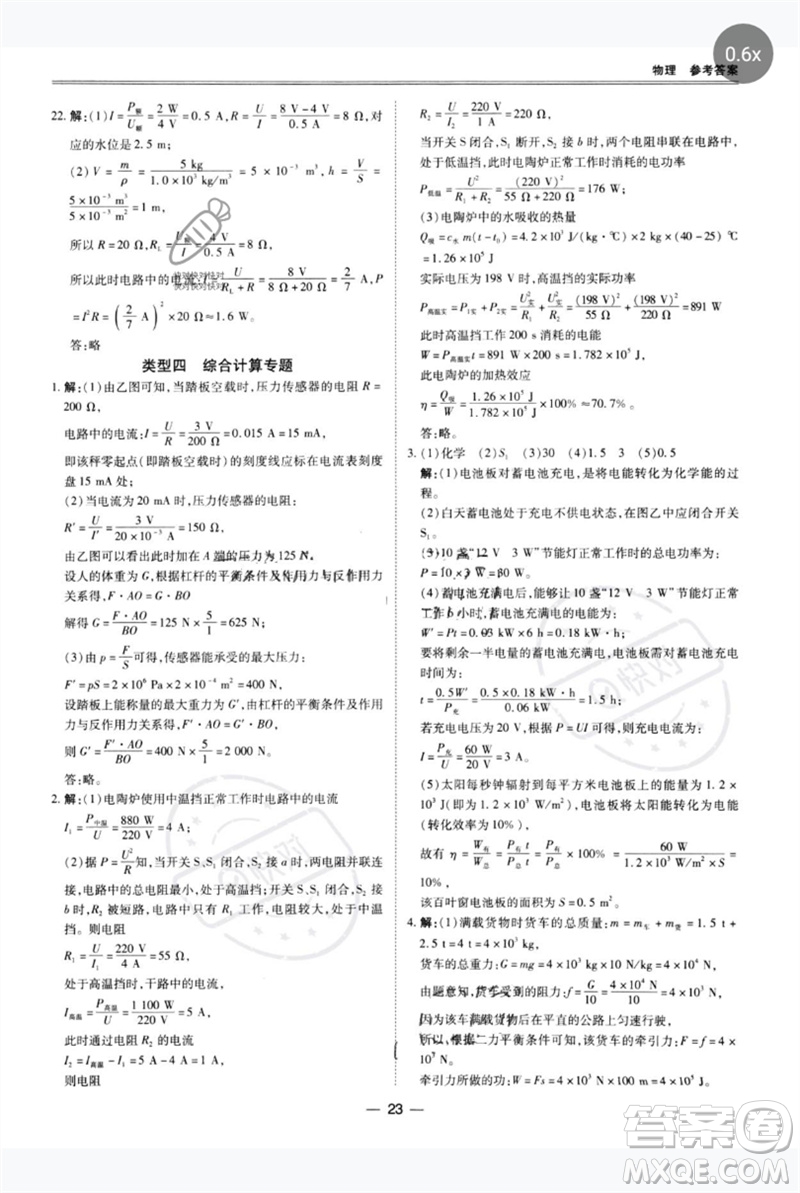 0.6x
物理 参考答案
22. 解:(1)I=P额/U额=2 W/4 V=0.5 A,R=U/I=(8 V-4 V)/0.5 A=8 Ω,对
应的水位是2.5 m;
(2)V=m/ρ=5 kg/(1.0×10³ kg/m³)=5×10⁻³ m³,h=V/S=
5×10⁻³ m³/5×10⁻³ m²=1 m,
所以R=20 Ω,R_L=U额/I额=4 V/0.5 A=8 Ω,
所以此时电路中的电流:I=U/(R_L+R)=8 V/(8 Ω+20 Ω)=2/7 A,P
=I²R=(2/7 A)²×20 Ω≈1.6 W。
答:略
类型四 综合计算专题
1. 解:(1)由乙图可知,当踏板空载时,压力传感器的电阻R=
200 Ω,
电路中的电流:I=U/R=3 V/200 Ω=0.015 A=15 mA,
即该秤零起点(即踏板空载时)的刻度线应标在电流表刻度
盘15 mA处;
(2)当电流为20 mA时,压力传感器的电阻:
R′=U/I′=3 V/(20×10⁻³ A)=150 Ω,
由乙图可以看出A端的压力为125 N,
设人的体重为G,根据杠杆的平衡条件及作用力与反作用力
关系,F·AO=G·BO
解得G=F·AO/BO=125 N×5/1=625 N;
(3)由p=F/S可得,传感器能承受的最大压力:
F′=pS=2×10⁶ Pa×2×10⁻⁴ m²=400 N,
设踏板上的最大压力为G′,由杠杆的平衡条件及作用
力与反作用力关系,F′·AO=G′·BO
则G′=F′·AO/BO=400 N×5/1=2 000 N。
答:略。
2. 解:(1)电陶炉使用中温挡正常工作时电路中的电流
I₁=P中温/U=880 W/220 V=4 A;
(2)据P=U²/R知,当开关S、S₁闭合、S₂接a时,两电阻并联连
接,电路中的总电阻最小,处于高温挡;开关S、S₁闭合,S₂接
b时,R₂被短路,电路中只有R₁工作,电阻较大,处于中温
挡。则电阻
R₁=U/I₁=220 V/4 A=55 Ω,
处于高温挡时,干路中的电流
I高温=P高温/U=1 100 W/220 V=5 A,
此时通过电阻R₂的电流
I₂=I高温-I₁=5 A-4 A=1 A
则电阻
R₂=U/I₂=220 V/1 A=220 Ω
当开关S闭合、S₁断开,S₂接b时,两个电阻串联在电路中,
处于低温挡,此时电陶炉正常工作时消耗的电功率
P低温=U²/(R₁+R₂)=(220 V)²/(55 Ω+220 Ω)=176 W;
(3)电陶炉中的水吸收的热量
Q吸=c水m(t-t₀)=4.2×10³ J/(kg·℃)×2 kg×(40-25)℃
=1.26×10⁵ J
实际电压为198 V时,高温挡的实际功率
P高温实=P₁实+P₂实=U实²/R₁+U实²/R₂=(198 V)²/55 Ω+(198 V)²/220 Ω=891 W
此时高温挡工作200 s消耗的电能
W=P高温实t=891 W×200 s=1.782×10⁵ J
电陶炉的加热效应
η=Q吸/W=1.26×10⁵ J/1.782×10⁵ J×100%≈70.7%。
答:略。
3. (1)化学 (2)S₁ (3)30 (4)1.5 3 (5)0.5
解:(1)电池板对蓄电池充电,是将电能转化为化学能的过
程。
(2)白天蓄电池处于充电不供电状态,在图乙中应闭合开关
S₁。
(3)10盏“12 V 3 W”节能灯正常工作时的总电功率为
P=10×3 W=30 W。
(4)蓄电池充满电后,能够让10盏“12 V 3 W”节能灯正常
工作6小时,蓄电池充满电的电能为:
W′=Pt=0.03 kW×6 h=0.18 kW·h
要将剩余一半电量的蓄电池充满电,需要给蓄电池充满电
时间为:
t=0.5W′/P充=0.5×0.18 kW·h/0.06 kW=1.5 h。
若充电电压为20 V,根据P=UI可得,则充电电流为:
I=P充/U=60 W/20 V=3 A。
(5)太阳每秒钟辐射到每平方米电池板上的能量为1.2×
10³ J(既功率),电池板将太阳能转化为电能的转化效率
(转化效率为10%),
故有η=W有/W总=P有t/P总t=P有/P总×100%=60 W/(1.2×10³ W/m²×S)=10%,
该百叶窗电池板的面积为S=0.5 m²。
4. 解:(1)满载货物时货车的总质量:m=m车+m货=1.5 t+
2.5 t=4 t=4×10³ kg
货车的总重力:G=mg=4×10³ kg×10 N/kg=4×10⁴ N
由题意知,货车受到的阻力:f=G/10=4×10⁴ N/10=4×10³ N,
因为该车满载货物后在平直的公路上匀速行驶,
所以,根据二力平衡条件可知,货车的牵引力:F=f=4×
10³ N,
牵引力所做的功:W=Fs=4×10³ N×100×10³ m=4×
23
快对
快对
答案圈
MXQE.COM